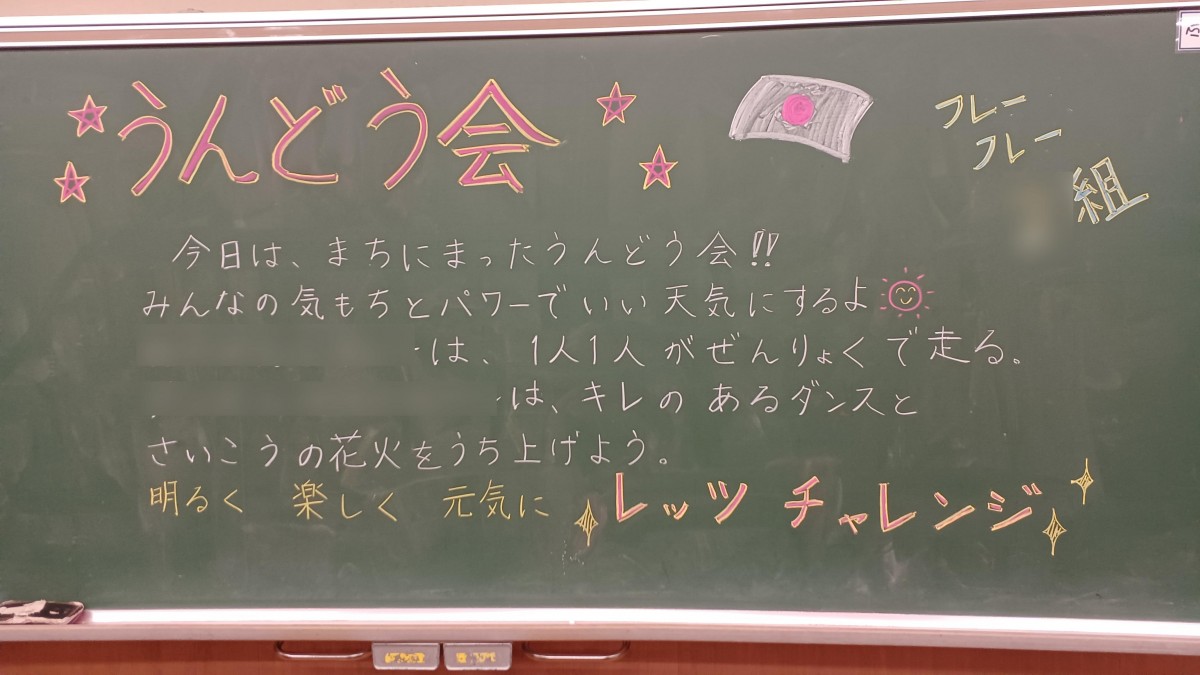 うんどう会
フレー
フレー
組
今日は、まちにまったうんどう会!!
みんなの気もちとパワーでいい天気にするよ
は、1人1人がぜんりょくで走る。
は、キレのあるダンスと
さいこうの花火をうち上げよう。
明るく 楽しく 元気に レッツ チャレンジ